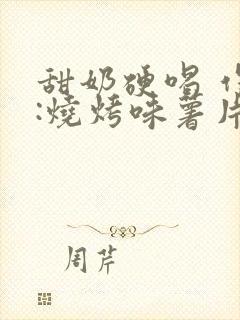 甜奶硬唱
:燒烤味薯片
周芹